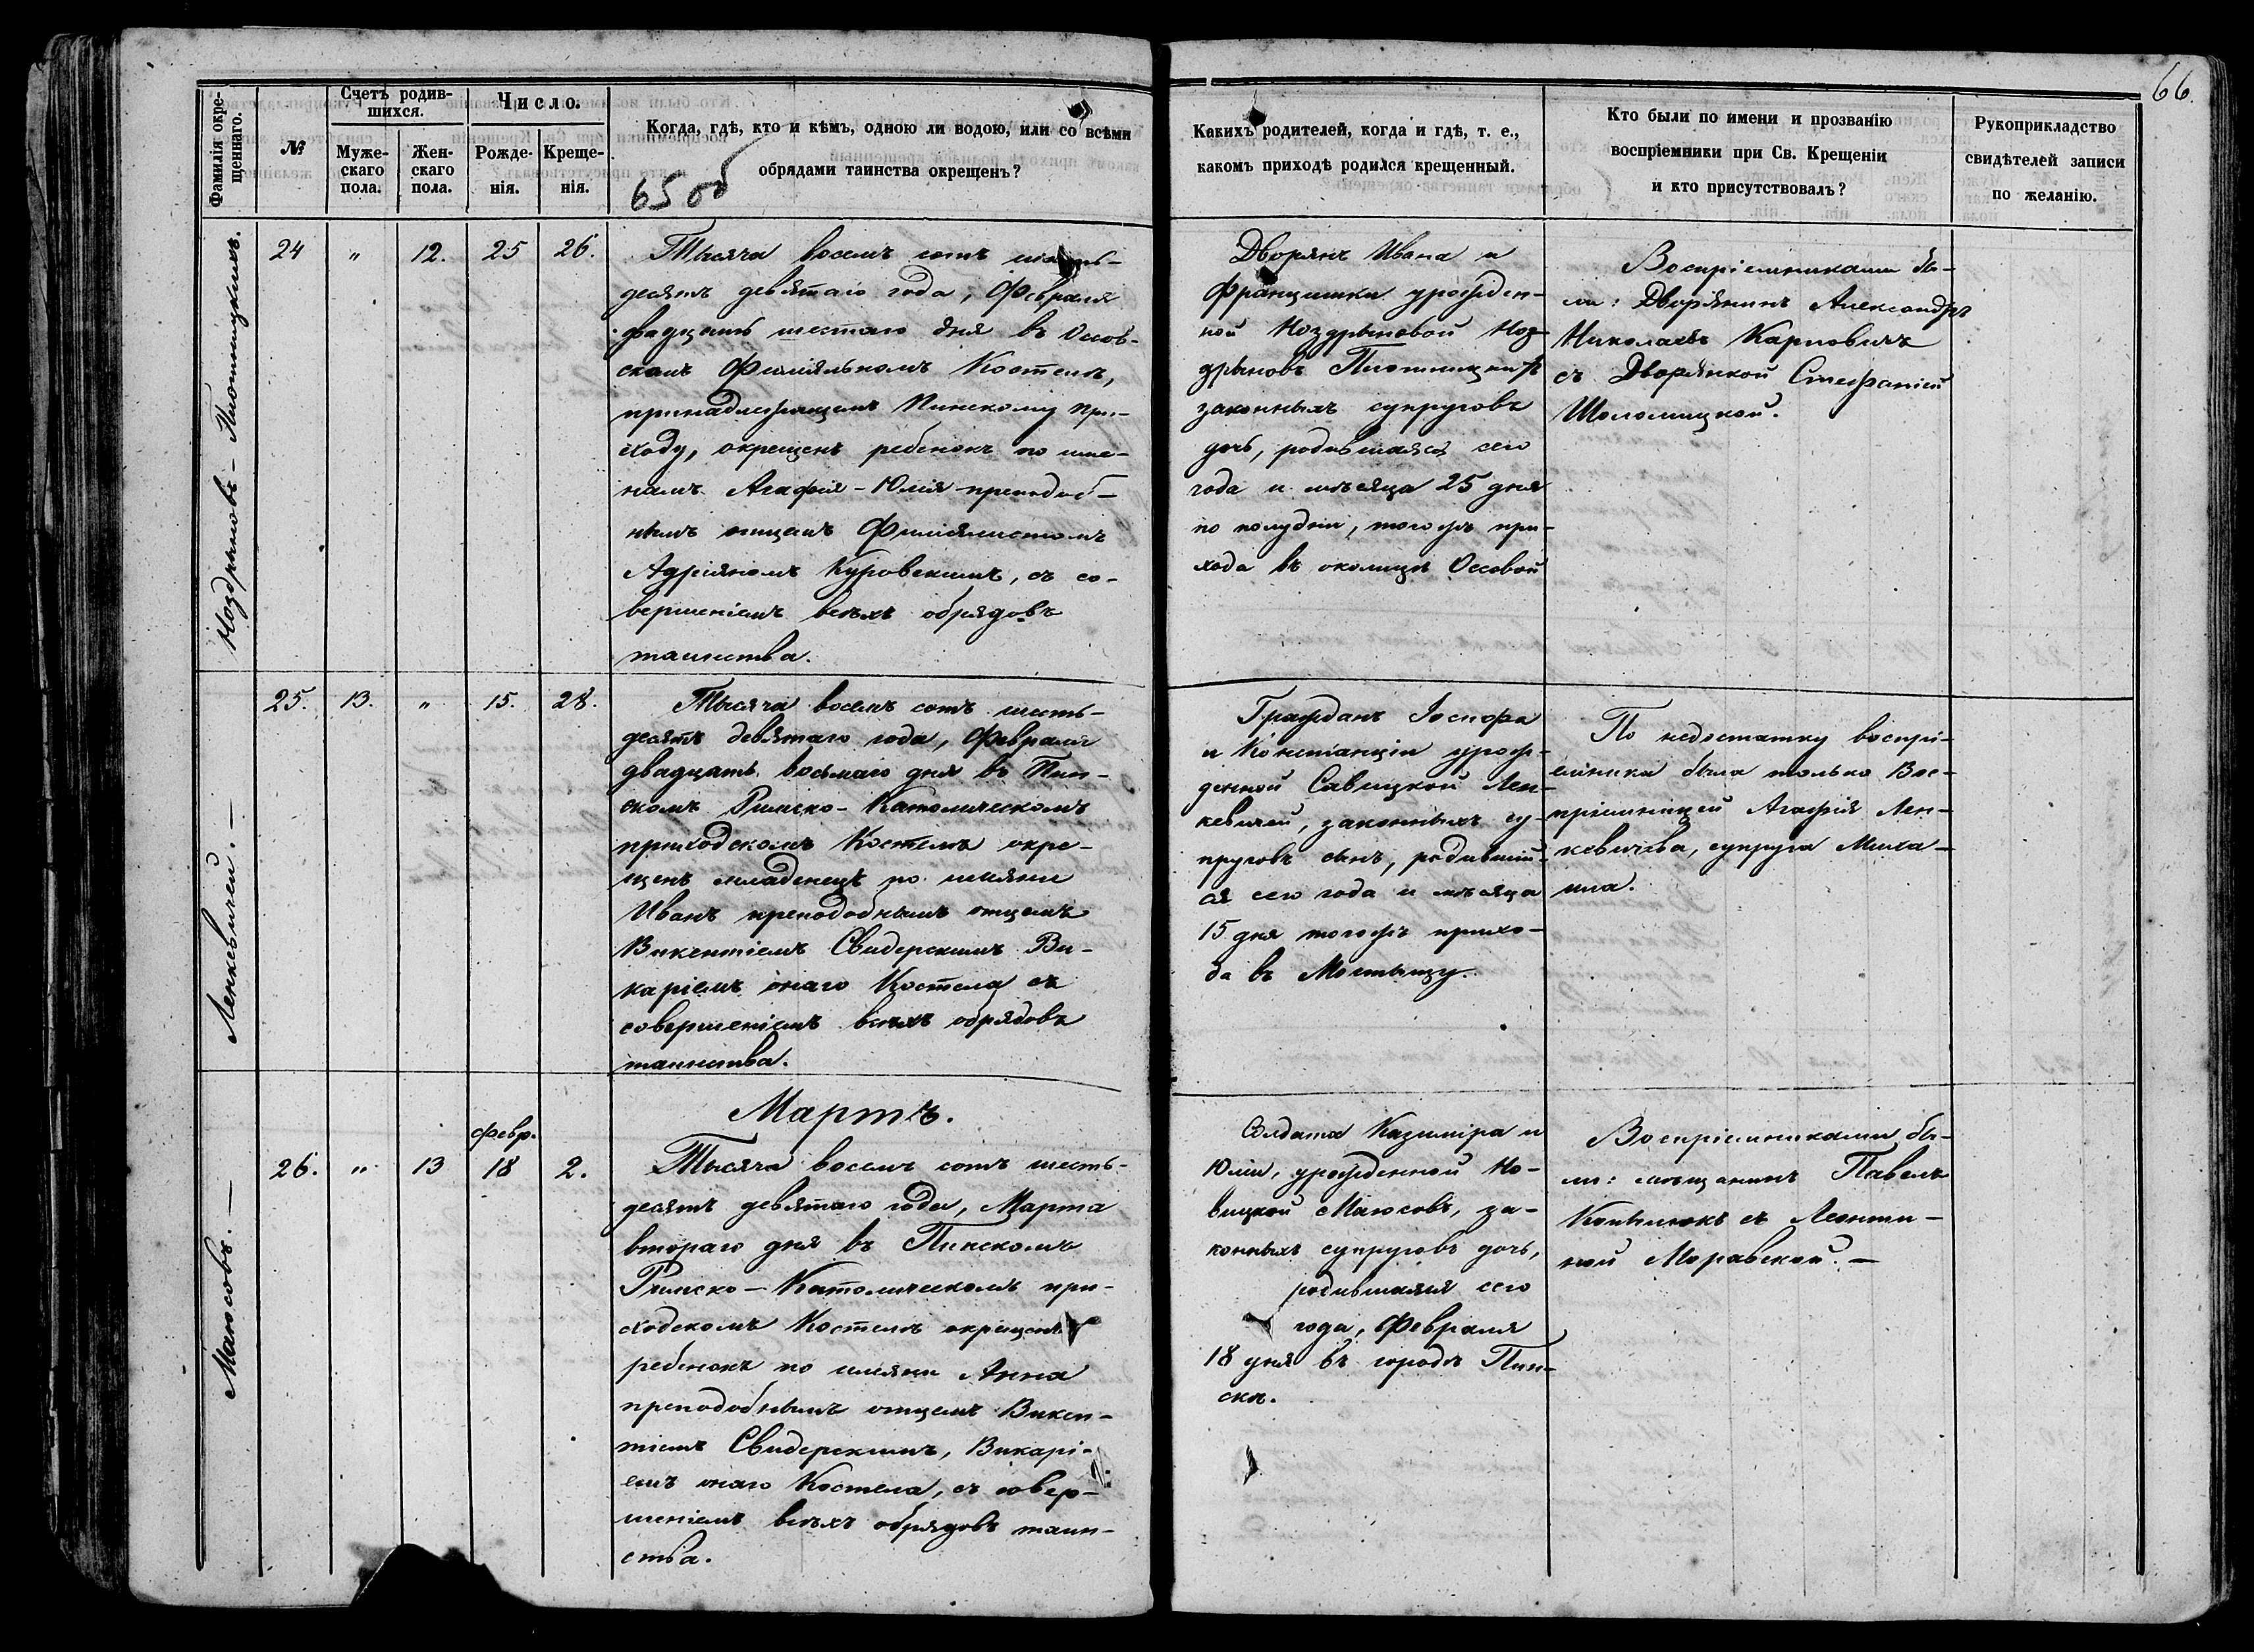 66.
Фамилія окре-
щеннаго.
№
Счетъ родив-
шихся.
Муже-
скаго
пола.
Жен-
скаго
пола.
Число.
Рожде-
нія.
Креще-
нія.
Когда, гдѣ, кто и кѣмъ, одною ли водою, или со всѣми
обрядами таинства окрещенъ?
65 об
Какихъ родителей, когда и гдѣ, т. е.,
какомъ приходѣ родился крещенный.
Кто были по имени и прозванію
воспріемники при Св. Крещеніи
и кто присутствовалъ?
Рукоприкладство
свидѣтелей записи
по желанію.
Ноздрыновъ-Плотницкихъ.
24 „ 12. 25 26.
Тысяча восемь сотъ шесть-
десятъ девятаго года, Февраля
двадцать шестаго дня въ Оссов-
скомъ Филіяльномъ Костелѣ,
принадлежащемъ Пинскому при-
ходу, окрещенъ ребенокъ по име-
намъ Агафія-Юлія преподоб-
нымъ отцемъ Филіялистомъ
Адріяномъ Куровскимъ, съ со-
вершеніемъ всѣхъ обрядовъ
таинства.
Дворянъ Ивана и
Францишки урожден-
ной Ноздрыновой Ноз-
дрыновъ Плотницкихъ
законныхъ супруговъ
дочь, родившаяся сего
года и мѣсяца 25 дня
по полудни, тогожъ при-
хода въ околицѣ Оссовой
Воспріемниками бы-
ли: Дворянинъ Александръ
Николаевъ Карповичъ
съ Дворянкой Стефаніей
Шоломицкой.
Ленкевичей.—
25. 13. „ 15. 28.
Тысяча восемь сотъ шесть-
десятъ девятаго года, Февраля
двадцать восьмаго дня въ Пин-
скомъ Римско-Католическомъ
приходскомъ Костелѣ окре-
щенъ младенецъ по имяни
Иванъ преподобнымъ отцемъ
Викентіемъ Свидерскимъ Ви-
каріемъ онаго Костела съ
совершеніемъ всѣхъ обрядовъ
таинства.
Гражданъ Іосифа
и Констанціи урож-
денной Савицкой Лен-
кевичей, законныхъ су-
пруговъ сынъ, родивший-
ся сего года и мѣсяца
15 дня тогожъ прихо-
да въ Мостыцу.
По недостатку воспрі-
емника была только Вос-
пріемницей Агафія Лен-
кевичева, супруга Миха-
ила.
Маюсовъ.—
Мартъ.
Февр.
26. „ 13 18 2.
Тысяча восемь сотъ шесть-
десятъ девятаго года, Марта
втораго дня въ Пинскомъ
Римско-Католическомъ при-
ходскомъ Костелѣ окрещенъ
ребенокъ по имяни Анна
преподобнымъ отцемъ Викен-
тіемъ Свидерскимъ, Викарі-
емъ онаго Костела, съ совер-
шеніемъ всѣхъ обрядовъ таин-
ства.
Солдата Казиміра и
Юліи, урожденной Но-
вицкой Маюсовъ, за-
конныхъ супруговъ дочь,
родившаяся сего
года, Февраля
18 дня въ городѣ Пин-
скѣ.
Воспріемниками бы-
ли: мѣщанинъ Павелъ
Копылюкъ съ Леонти-
ной Моравской.—